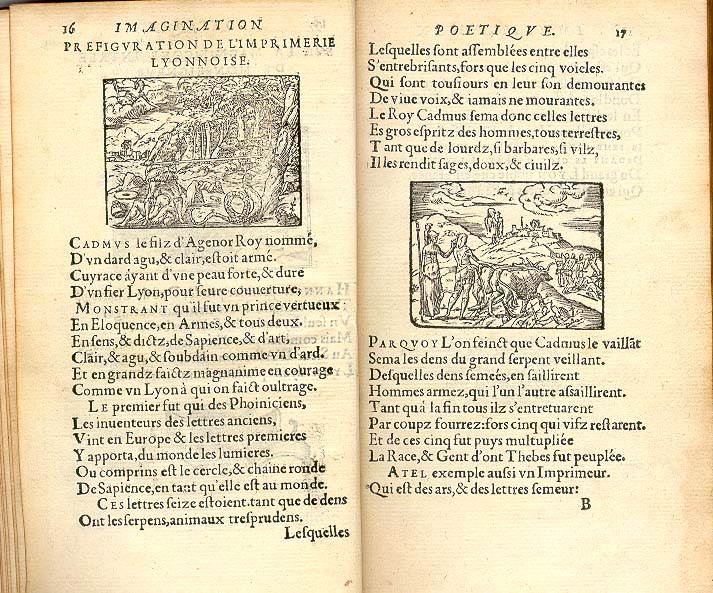 16 IMAGINATION
PREFIGVRATION DE L'IMPRIMERIE
LYONNOISE.
CADMVS le filz d'Agenor Roy nommé,
D'vn dard agu, & clair, estoit armé.
Cuyrace àyant d'vne peau forte, & dure
D'vn fier Lyon, pour seure couuerture,
MONSTRANT qu'il fut vn prince vertueux:
En Eloquence, en Armes, & tous deux.
En sens, & dictz, de Sapience, & d'art,
Clair, & agu, & soubdain comme vn d'ard.
Et en grandz faictz magnanime en courage
Comme vn Lyon à qui on faict oultrage.
LE premier fut qui des Phoiniciens,
Les inuenteurs des lettres anciens,
Vint en Europe & les lettres premieres
Y apporta, du monde les lumieres.
Ou comprins est le cercle, & chaine ronde
De Sapience, en tant qu'elle est au monde.
CES lettres seize estoient tant que de dens
Ont les serpens, animaux tresprudens.
Lesquelles
POETIQVE. 17
Lesquelles sont assemblées entre elles
S'entrebrisants, fors que les cinq voieles.
Qui sont tousiours en leur son demourantes
De viue voix, & iamais ne mourantes.
Le Roy Cadmus sema donc celles lettres
Es gros espritz des hommes, tous terrestres,
Tant que de lourdz, si barbares, si vilz,
Il les rendit sages, doux, & ciuilz.
PARQVOY L'on feinct que Cadmus le vaillãt
Sema les dens du grand serpent veillant.
Desquelles dens semeés, en saillirent
Hommes armez, qui l'un l'autre assaillirent.
Tant qu'à la fin tous ilz s'entretuarent
Par coupz fourrez: fors cinq qui vifz restarent.
Et de ces cinq fut puys multupliée
La Race, & Gent d'ont Thebes fut peuplée.
ATEL exemple aussi vn Imprimeur.
Qui est des ars, & des lettres semeur:
B